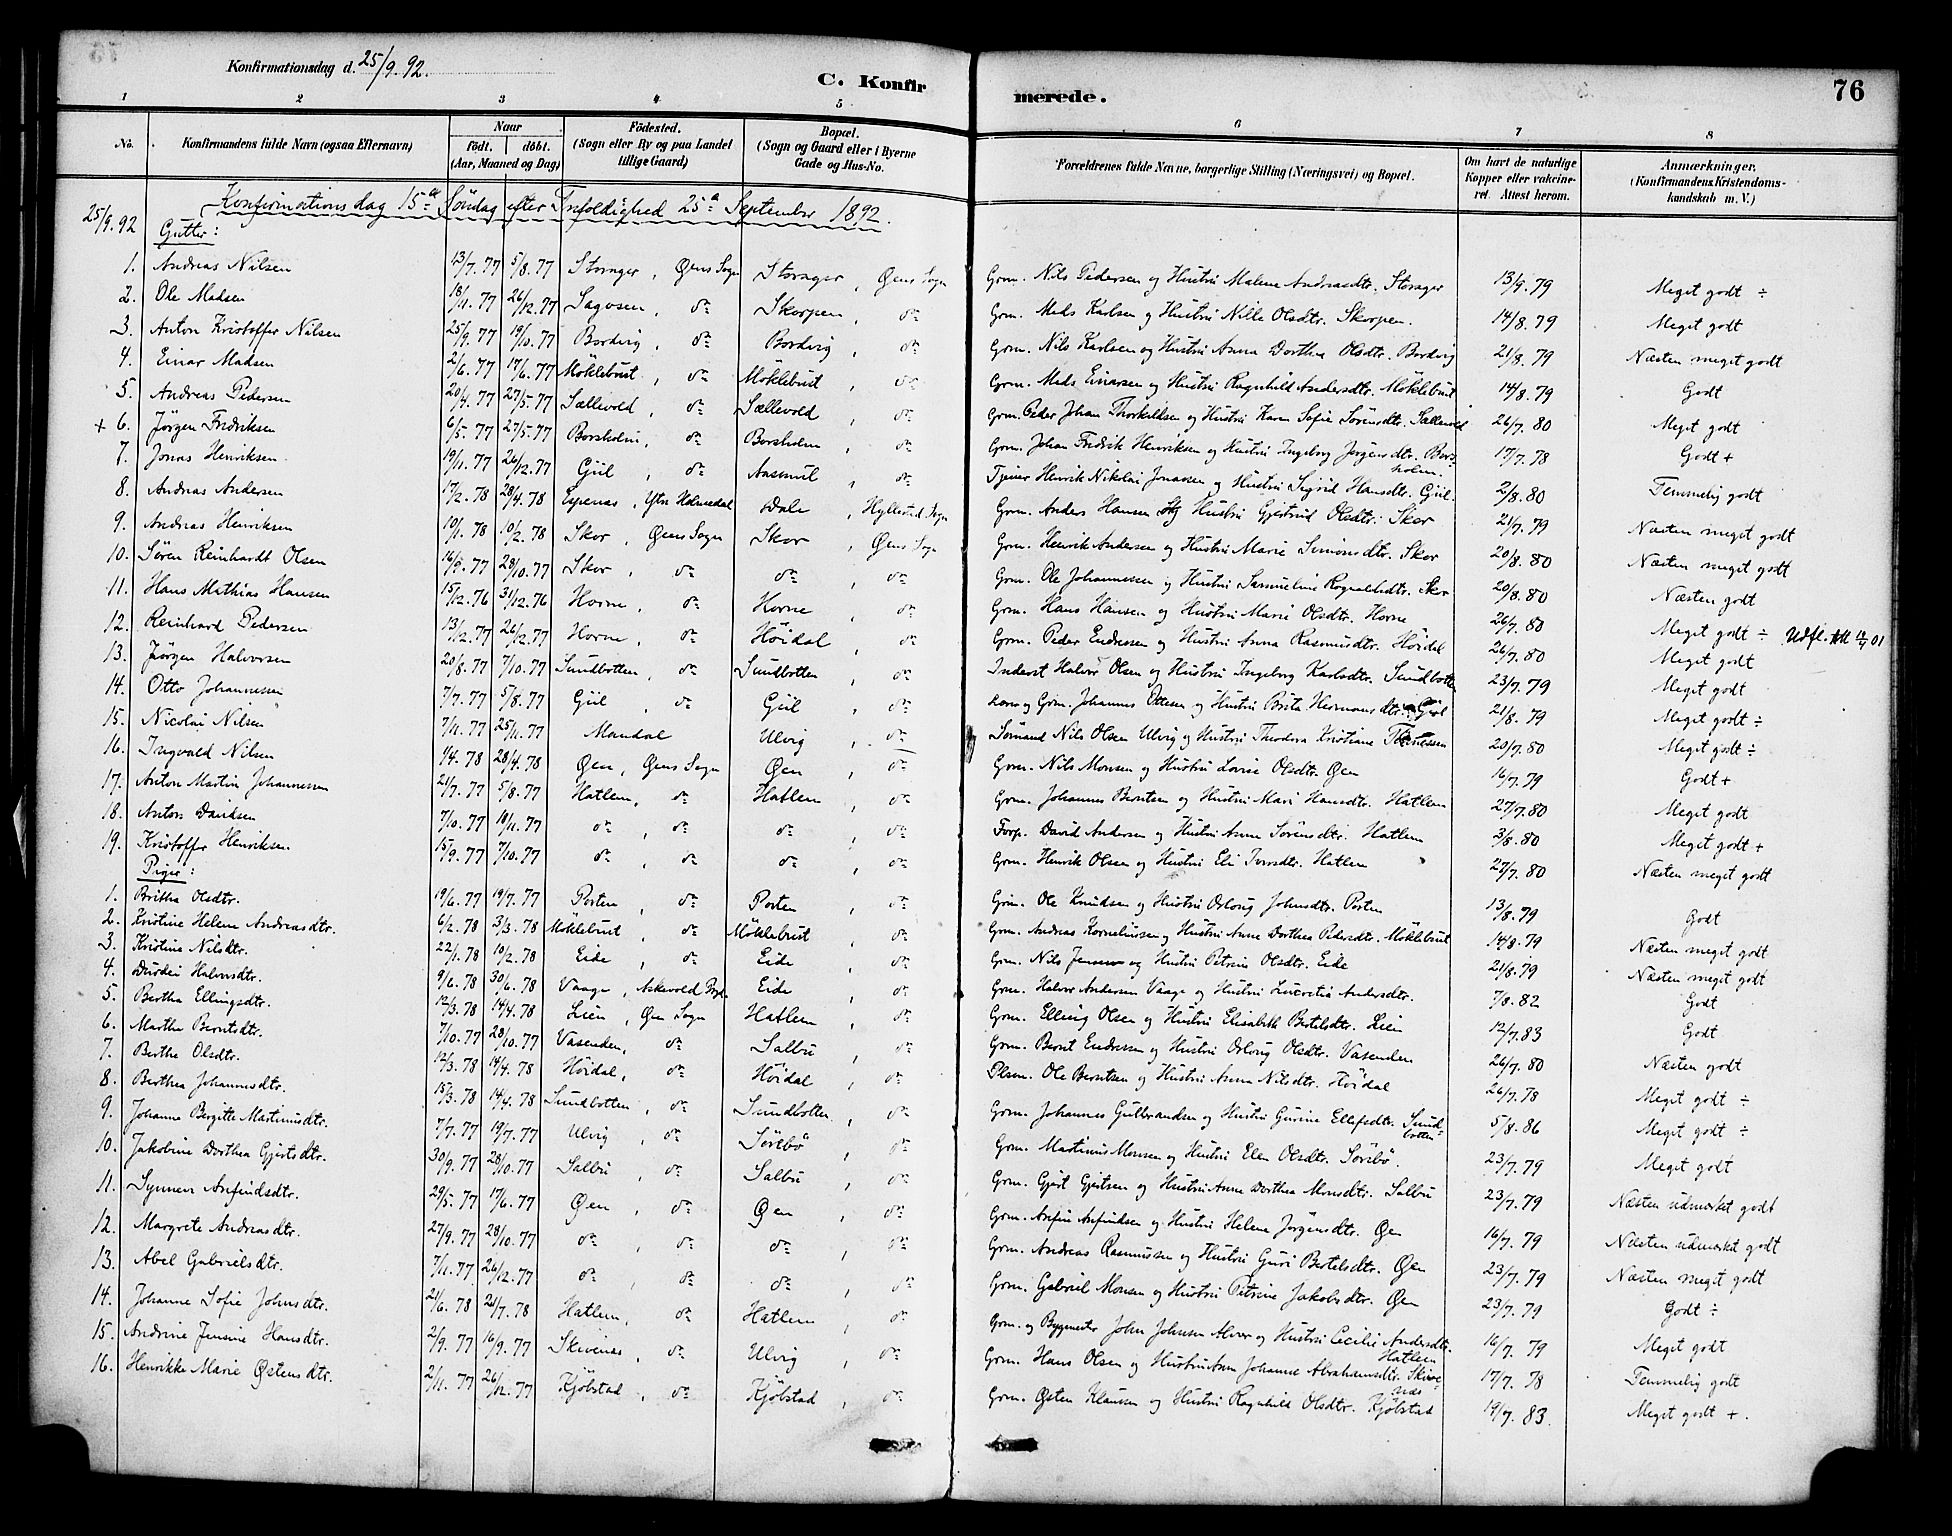 Konfirmationsdag d. 25/9. 92.
C. Konfirmerede.
76
1 2 3 4 5 6 7 8
No. Konfirmandens fulde Navn (ogsaa Efternavn) Naar født. døbt. (Aar, Maaned og Dag) Fødested. (Sogn eller By og paa Landet tillige Gaard) Bopæl. (Sogn og Gaard eller i Byerne Gade og Hus-No. Forældrenes fulde Navne, borgerlige Stilling (Næringsvei) og Bopæl. Om havt de naturlige Kopper eller vakcineret. Attest herom. Anmærkninger. (Konfirmandens Kristendomskundskab m. V.)
25/9. 92 Konfirmationsdag 15de Søndag efter Trefoldighed 25de September 1892.
Gutter:
1. Andreas Nilsen 13/7. 77 5/8. 77 Storager, Øens Sogn Storager, Øens Sogn Grm. Nils Pedersen og Hustri Malene Andreasdtr. Storager 13/9. 79 Meget godt ÷
2. Ole Madsen 18/11. 77 26/12. 77 Sagosen, do Skorpen, do Grm. Mads Karlsen og Hustri Nille Olsdtr. Skorpen. 14/8. 79 Meget godt
3. Anton Kristoffer Nilsen 25/9. 77 19/10. 77 Bordvig, do Bordvig, do Grm. Nils Karlsen og Hustri Anna Dorthea Olsdtr. Bordvig 21/8. 79 Næsten meget godt
4. Einar Madsen 2/6. 77 17/6. 77 Møklebust, do Møklebust, do Grm. Mads Einarsen og Hustri Ragnhild Andersdtr. Møklebust 14/8. 79 Godt
5. Andreas Pedersen 20/4. 77 27/5. 77 Sællevold, do Sællevold, do Grm. Peder Johan Thorkildsen og Hustri Karen Sofie Sørensdtr. Sællevold 26/7. 80 Meget godt
+ 6. Jørgen Fredriksen 6/5. 77 27/5. 77 Borsholm, do Borsholm, do Grm. Johan Fredrik Henriksen og Hustri Ingeborg Jørgensdtr. Borsholm. 17/7. 78 Godt +
7. Jonas Henriksen 19/11. 77 26/12. 77 Giil, do Aasmul, do Tjener Henrik Nikolai Jonassen og Hustri Sigrid Hansdtr. Giil. 2/8. 80 Temmelig godt
8. Andreas Andersen 17/2. 78 28/4. 78 Espenæs, Ytre Holmedal Dale, Hyllestad Sogn Grm. Anders Hansen og Hustri Gjertrud Olsdtr. Skor 21/7. 79 Næsten meget godt
9. Andreas Henriksen 10/1. 78 10/2. 78 Skor, Øens Sogn Skor, Øens Sogn Grm. Henrik Andersen og Hustri Marie Simonsdtr. Skor 20/8. 80 Næsten meget godt
10. Søren Reinhardt Olsen 16/9. 77 28/10. 77 Skor, do do, do Grm. Ole Johannessen og Hustri Samueline Rognaldsdtr. Skor 20/8. 80 Næsten godt
11. Hans Mathias Hansen 15/12. 76 31/12. 76 Horne, do Horne, do Grm. Hans Hansen og Hustri Marie Olsdtr. Horne 26/7. 80 Meget godt ÷ Udfl.
12. Reinhard Pedersen 13/12. 77 26/12. 77 Horne, do Höidal, do Grm. Peder Endresen og Hustri Anna Rasmusdtr. Höidal 26/7. 80 Meget godt
13. Jørgen Halvorsen 20/8. 77 7/10. 77 Sundbotten, do Sundbotten, do Inderst Halvor Olsen og Hustri Ingeborg Karlsdtr. Sundbotten 23/7. 79 Meget godt
14. Otto Johannessen 7/7. 77 5/8. 77 Giil, do Giil, do Grm. Johannes Ottesen og Hustri Brita Hermansdtr. Giil 21/8. 79 Meget godt ÷
15. Nicolai Nilsen 7/11. 77 25/11. 77 Mandal Ulvig, do Sømand Nils Olsen Ulvig og Hustri Theodora Kristiane 20/7. 80 Meget godt ÷
16. Ingvald Nilsen 1/4. 78 28/4. 78 Øen, Øens Sogn Øen, do Grm. Nils Monsen og Hustri Lovise Olsdtr. Øen 16/7. 79 Godt +
17. Anton Martin Johannessen 21/7. 77 5/8. 77 Hatlem, do Hatlem, do Grm. Johannes Berntsen og Hustri Mari Hansdtr. Hatlem 27/7. 80 Meget godt
18. Anton Davidsen 7/10. 77 19/11. 77 do, do do, do Forp. David Andersen og Hustri Anne Sørensdtr. Hatlem 3/8. 80 Meget godt +
19. Kristoffer Henriksen. 15/9. 77 7/10. 77 do, do do, do Grm. Henrik Olsen og Hustri Eli Iversdtr. Hatlem 27/7. 80 Næsten meget godt
Piger:
1. Britha Olsdtr. 19/6. 77 19/7. 77 Porten, do Porten, do Grm. Ole Knudsen og Hustri Orloug Johnsdtr. Porten 13/8. 79 Godt
2. Kristine Helene Andreasdtr. 6/2. 78 3/3. 78 Møklebust, do Møklebust, do Grm. Andreas Korneliussen og Hustri Anne Dorthea Pedersdtr. Møklebust 14/8. 79 Næsten meget godt
3. Kristine Nilsdtr. 22/1. 78 10/2. 78 Eide, do Eide, do Grm. Nils Jensen og Hustri Petrine Olsdtr. Eide 21/8. 79 Næsten meget godt
4. Durdei Halvorsdtr. 9/6. 78 30/6. 78 Vaage, Askevold Eide, do Grm. Halvor Andersen Vaage og Hustri Lucretia Andersdtr. 7/8. 82 Godt
5. Bertha Ellingsdtr. 12/3. 78 14/4. 78 Lien, Øen Sogn Hatlem, do Grm. Elling Olsen og Hustri Elisabeth Bertelsdtr. Lien 12/7. 83 Godt
6. Marthe Berntsdtr. 7/10. 77 28/10. 77 Vasenden, do Salbu, do Grm. Bernt Endresen og Hustri Orloug Olsdtr. Vasenden 26/7. 80 Næsten godt
7. Berthe Olsdtr. 12/3. 78 14/4. 78 Höidal, do Höidal, do Plsm. Ole Berntsen og Hustri Anna Nilsdtr. Höidal 26/7. 78 Meget godt ÷
8. Berthea Johannesdtr. 15/3. 78 14/4. 78 Sundbotten, do Sundbotten, do Grm. Johannes Gulbrandsen og Hustri Gurine Ellefsdtr. Sundbotten 5/8. 86 Meget godt ÷
9. Johanne Bergitte Martinusdtr. 7/7. 77 19/7. 77 Ulvig, do Sørebø, do Grm. Martinus Monsen og Hustri Elen Olsdtr. Sørebø. 23/7. 79 Meget godt
10. Jakobine Dorthea Gjertsdtr. 30/9. 77 28/10. 77 Salbu, do Salbu, do Grm. Gjert Gjertsen og Hustri Anne Dorthea Monsdtr. Salbu 23/7. 79 Næsten udmerket godt
11. Synneve Anfindsdtr. 29/5. 77 17/6. 77 Øen, do Øen, do Grm. Anfin Anfindsen og Hustri Helene Jørgensdtr. Øen 16/7. 79 Næsten udmerket godt
12. Margrete Andreasdtr. 27/9. 77 28/10. 77 do, do do, do Grm. Andreas Rasmussen og Hustri Guri Bertelsdtr. Øen 23/7. 79 Næsten meget godt
13. Abel Gabrielsdtr. 7/11. 77 26/12. 77 do, do do, do Grm. Gabriel Monsen og Hustri Petrine Jakobsdtr. Øen 23/7. 79 Godt ÷
14. Johanne Sofie Johnsdtr. 21/6. 78 21/7. 78 Hatlem, do Hatlem, do Grm. og Bygmester John Johnsen Alver og Hustri Cecilie Andersdtr. Hatlem 16/7. 79 Meget godt
15. Andrine Jensine Hansdtr. 2/9. 77 16/9. 77 Skivenæs, do Ulvig, do Grm. Hans Olsen og Hustri Anne Johanne Abrahamsdtr. Skivenæs 17/7. 78 Temmelig godt
16. Henrikke Marie Østensdtr. 2/11. 77 26/12. 77 Kjøbstad, do Kjøbstad, do Grm. Østen Klausen og Hustri Ragnhild Olsdtr. Kjøbstad 19/7. 83. Meget godt +.